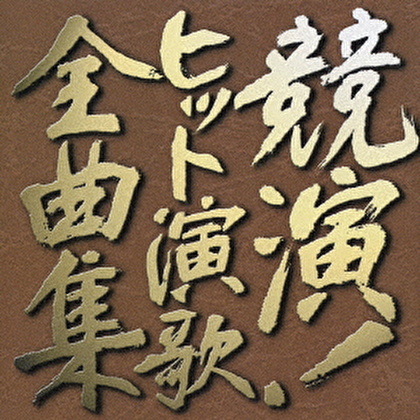 競演!
ヒット演歌、
全曲集